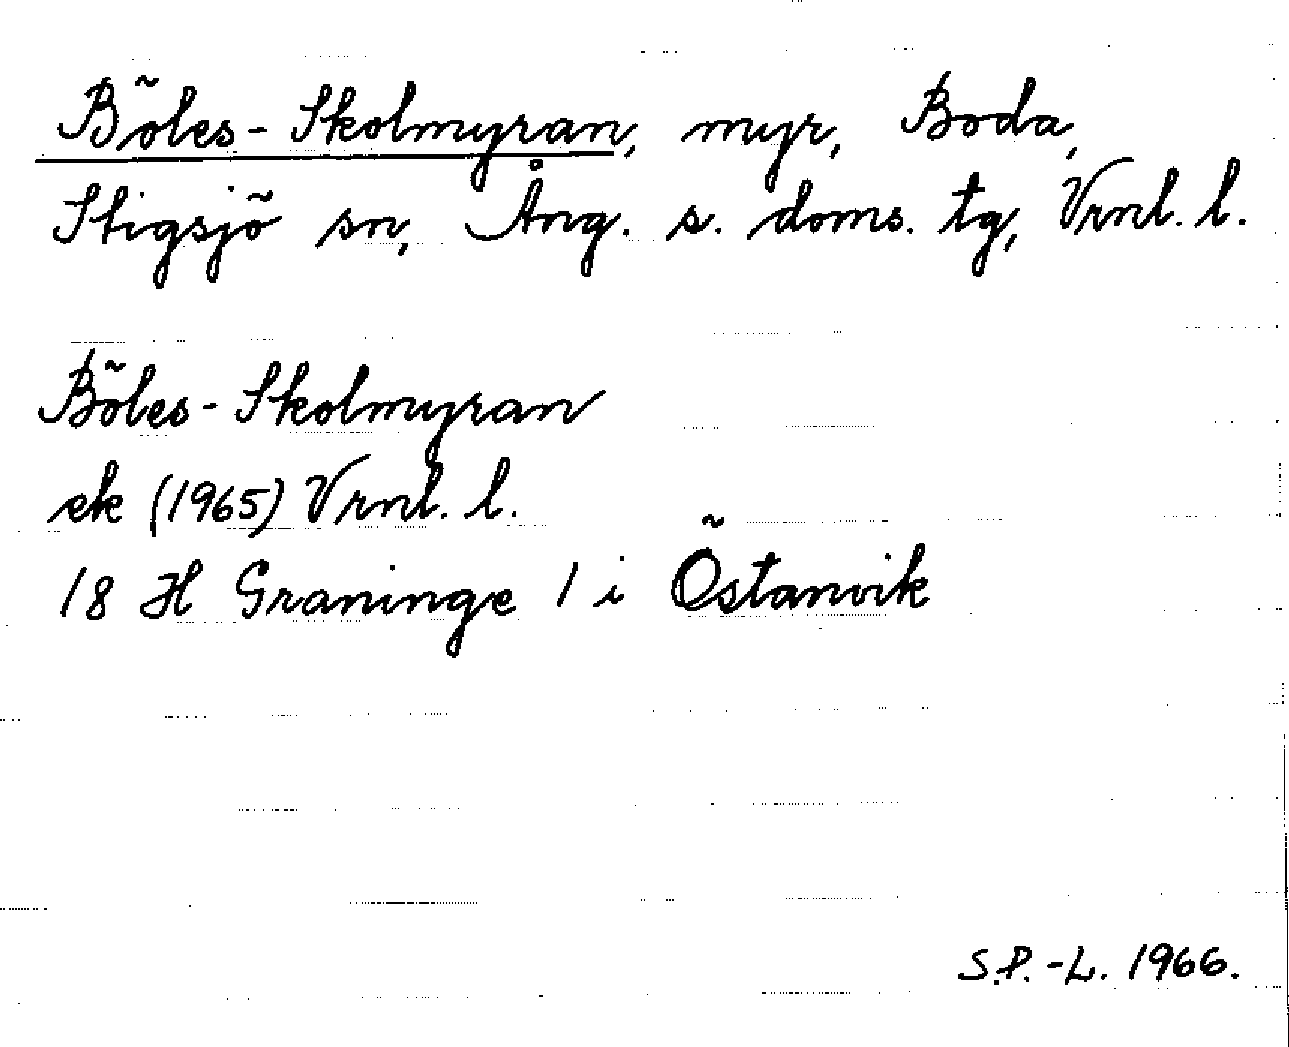 Böles-Skolmyran, myr, Boda,
Stigsjö sn, Ång. s. doms. tg, Vrnl. l.
Böles-Skolmyran
ek (1965) Vrnl. l.
18 H Graninge 1 i Östanvik
S.P.-L. 1966.